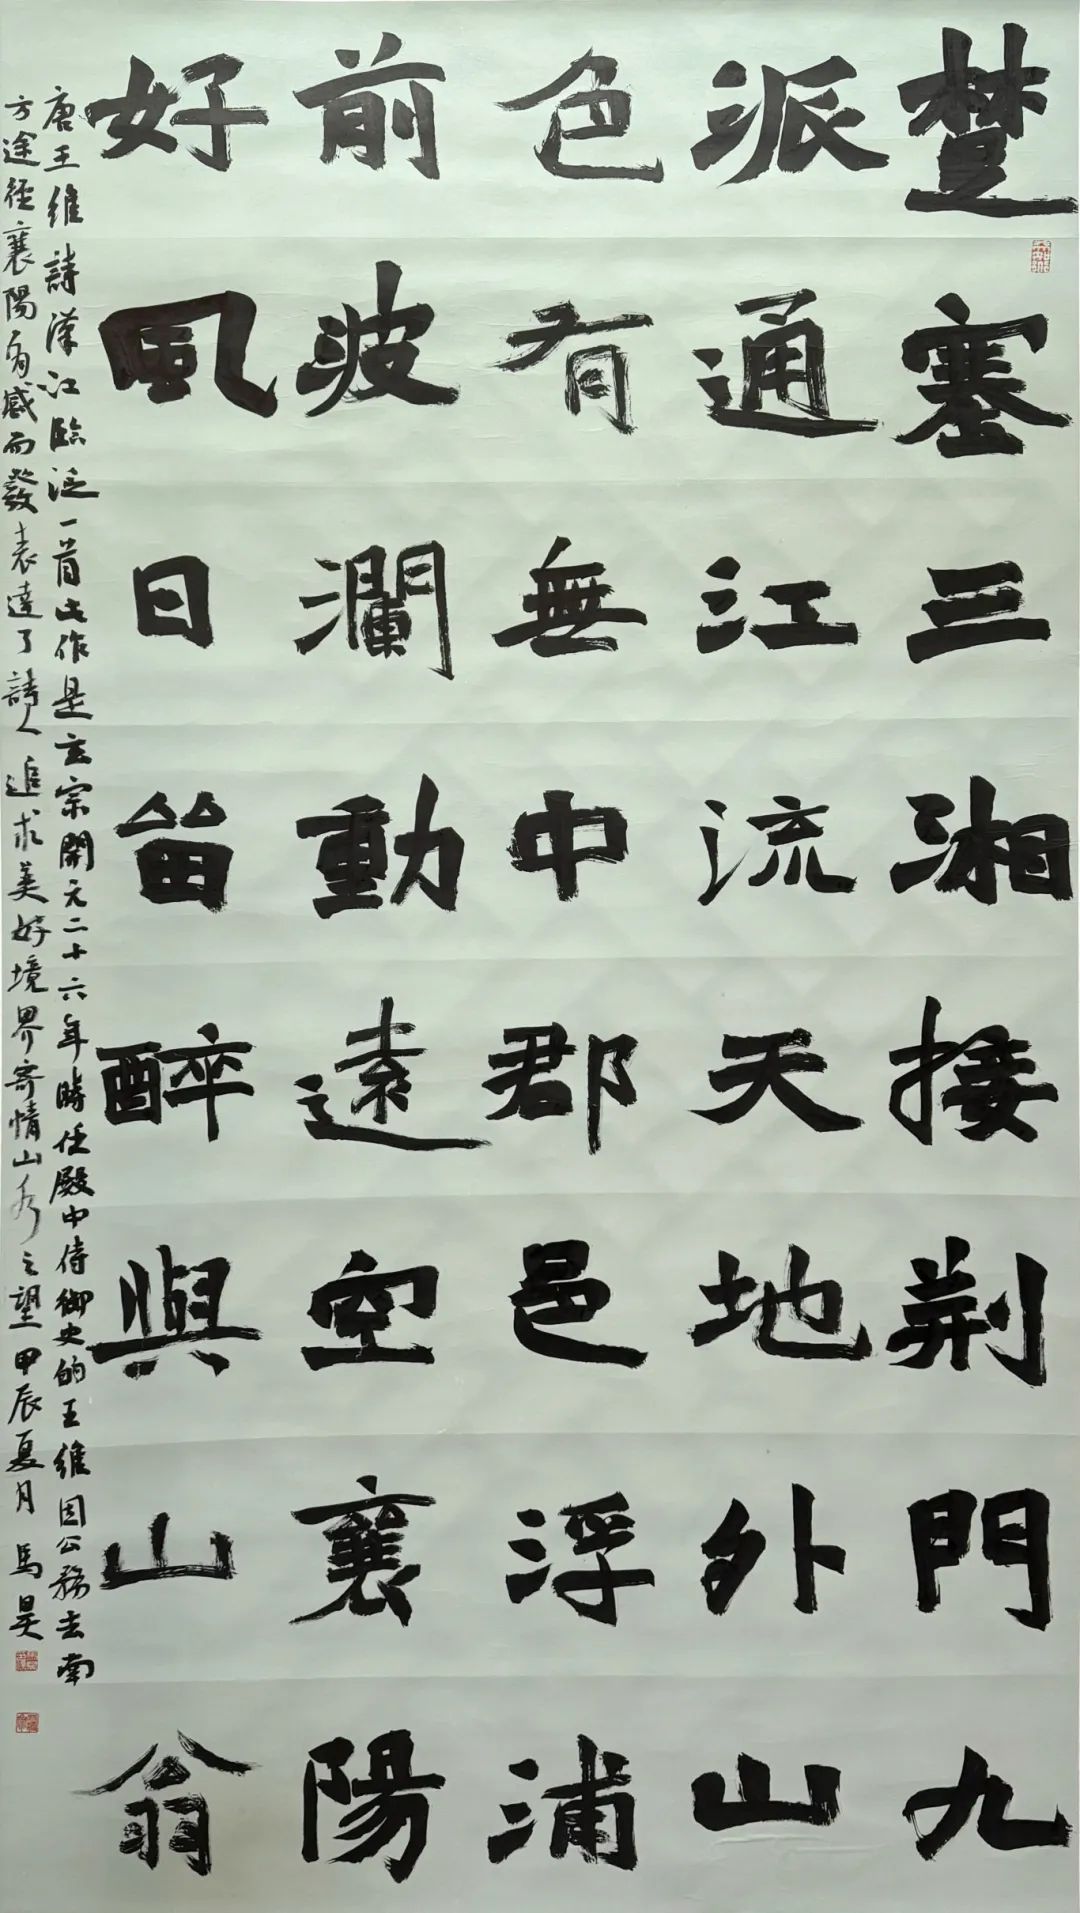 楚塞三湘接荆門九
派通江流天地外山
色有無中郡邑浮浦
前波瀾動遠空襄陽
好風日畱醉與山翁
唐王維詩漢江臨泛一首此作是玄宗開元二十六年時任殿中侍御史的王維因公務去南
方途徑襄陽有感而發表達了詩人追求美好境界寄情山水之望甲辰夏月馬昊